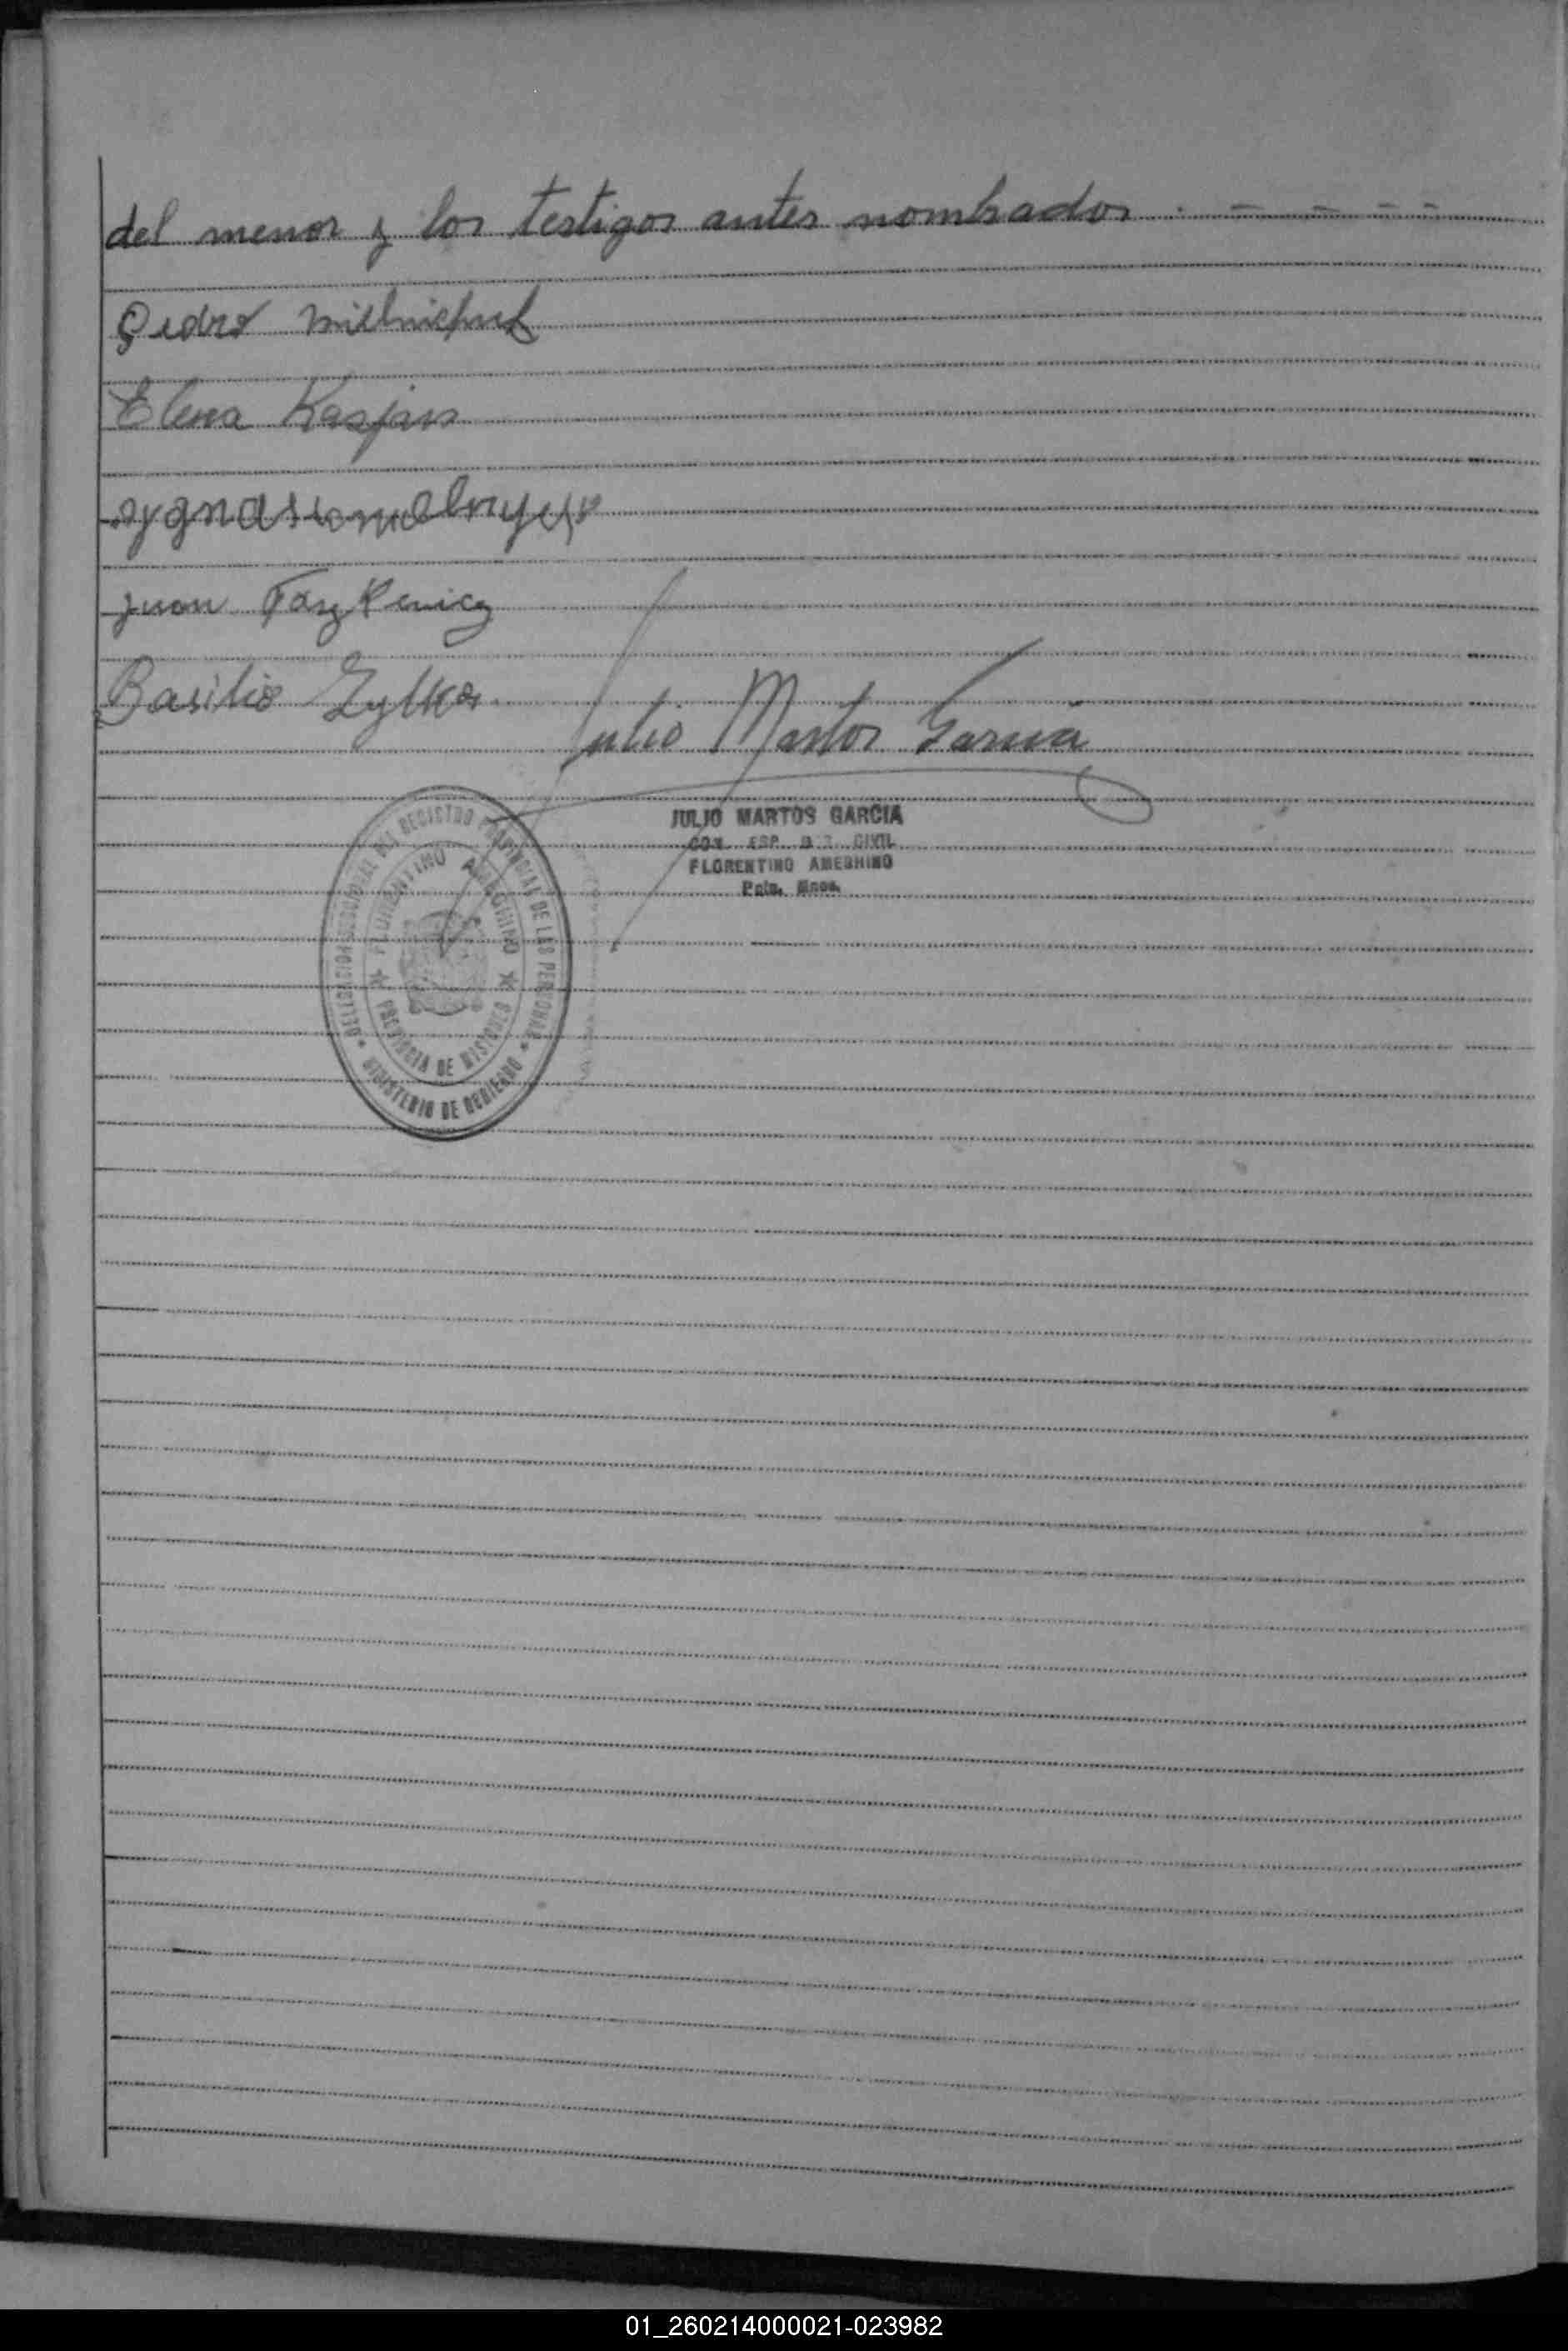 del menor y los testigos antes nombrados . - - - -
Pedro Mielnichuk
Elena Kasjan
Juan
Basilio Zylka
Julio Martos Garcia
JULIO MARTOS GARCIA
CIVIL
FLORENTINO AMEGHINO
DELEGACION SECCIONAL DEL REGISTRO PROVINCIAL DE LAS PERSONAS
FLORENTINO AMEGHINO
PROVINCIA DE MISIONES
MINISTERIO DE GOBIERNO
01_260214000021-023982